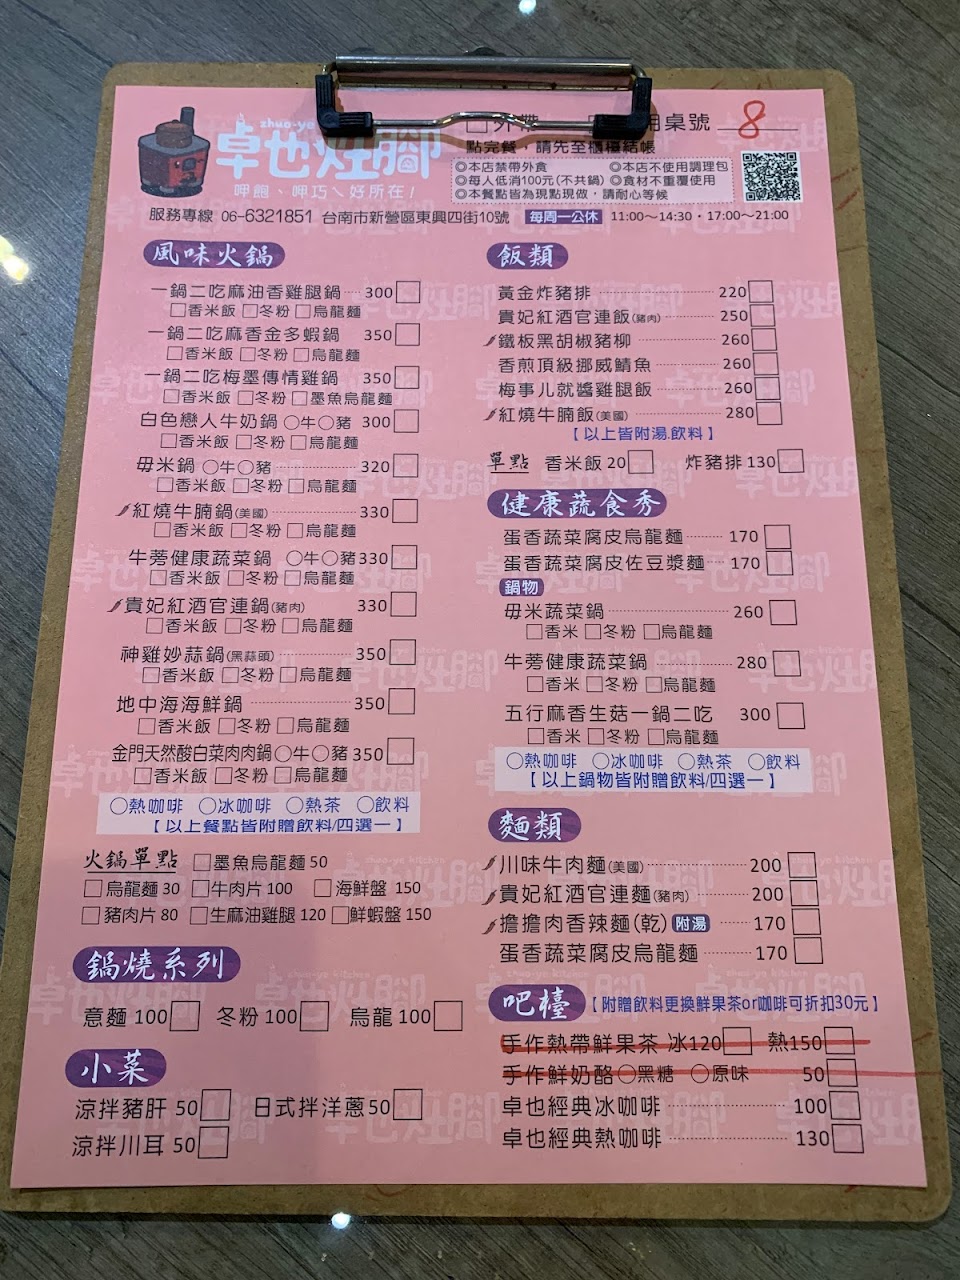 zhuo-ye
卓也灶腳
呷飽、呷巧ㄟ好所在!
外帶
用桌號 8
點完餐，請先至櫃檯結帳
◎本店禁帶外食 ◎本店不使用調理包
◎每人低消100元(不共鍋) ◎食材不重覆使用
◎本餐點皆為現點現做，請耐心等候
服務專線 06-6321851 台南市新營區東興四街10號 每周一公休 11:00～14:30・17:00～21:00
風味火鍋
一鍋二吃麻油香雞腿鍋 300
香米飯 冬粉 烏龍麵
一鍋二吃麻香金多蝦鍋 350
香米飯 冬粉 烏龍麵
一鍋二吃梅墨傳情雞鍋 350
香米飯 冬粉 墨魚烏龍麵
白色戀人牛奶鍋 ○牛○豬 300
香米飯 冬粉 烏龍麵
毋米鍋 ○牛○豬 320
香米飯 冬粉 烏龍麵
紅燒牛腩鍋(美國) 330
香米飯 冬粉 烏龍麵
牛蒡健康蔬菜鍋 ○牛○豬 330
香米飯 冬粉 烏龍麵
貴妃紅酒官連鍋(豬肉) 330
香米飯 冬粉 烏龍麵
神雞妙蒜鍋(黑蒜頭) 350
香米飯 冬粉 烏龍麵
地中海海鮮鍋 350
香米飯 冬粉 烏龍麵
金門天然酸白菜肉肉鍋○牛○豬 350
香米飯 冬粉 烏龍麵
○熱咖啡 ○冰咖啡 ○熱茶 ○飲料
【以上餐點皆附贈飲料/四選一】
火鍋單點 墨魚烏龍麵 50
烏龍麵 30 牛肉片 100 海鮮盤 150
豬肉片 80 生麻油雞腿 120 鮮蝦盤 150
鍋燒系列
意麵 100 冬粉 100 烏龍 100
小菜
涼拌豬肝 50 日式拌洋蔥 50
涼拌川耳 50
飯類
黃金炸豬排 220
貴妃紅酒官連飯(豬肉) 250
鐵板黑胡椒豬柳 260
香煎頂級挪威鯖魚 260
梅事儿就醬雞腿飯 260
紅燒牛腩飯(美國) 280
【以上皆附湯.飲料】
單點 香米飯 20 炸豬排 130
健康蔬食秀
蛋香蔬菜腐皮烏龍麵 170
蛋香蔬菜腐皮佐豆漿麵 170
鍋物
毋米蔬菜鍋 260
香米 冬粉 烏龍麵
牛蒡健康蔬菜鍋 280
香米 冬粉 烏龍麵
五行麻香生菇一鍋二吃 300
香米 冬粉 烏龍麵
○熱咖啡 ○冰咖啡 ○熱茶 ○飲料
【以上鍋物皆附贈飲料/四選一】
麵類
川味牛肉麵(美國) 200
貴妃紅酒官連麵(豬肉) 200
擔擔肉香辣麵(乾) 附湯 170
蛋香蔬菜腐皮烏龍麵 170
吧檯【附贈飲料更換鮮果茶or咖啡可折扣30元】
手作熱帶鮮果茶 冰120 熱150
手作鮮奶酪○黑糖 ○原味 50
卓也經典冰咖啡 100
卓也經典熱咖啡 130